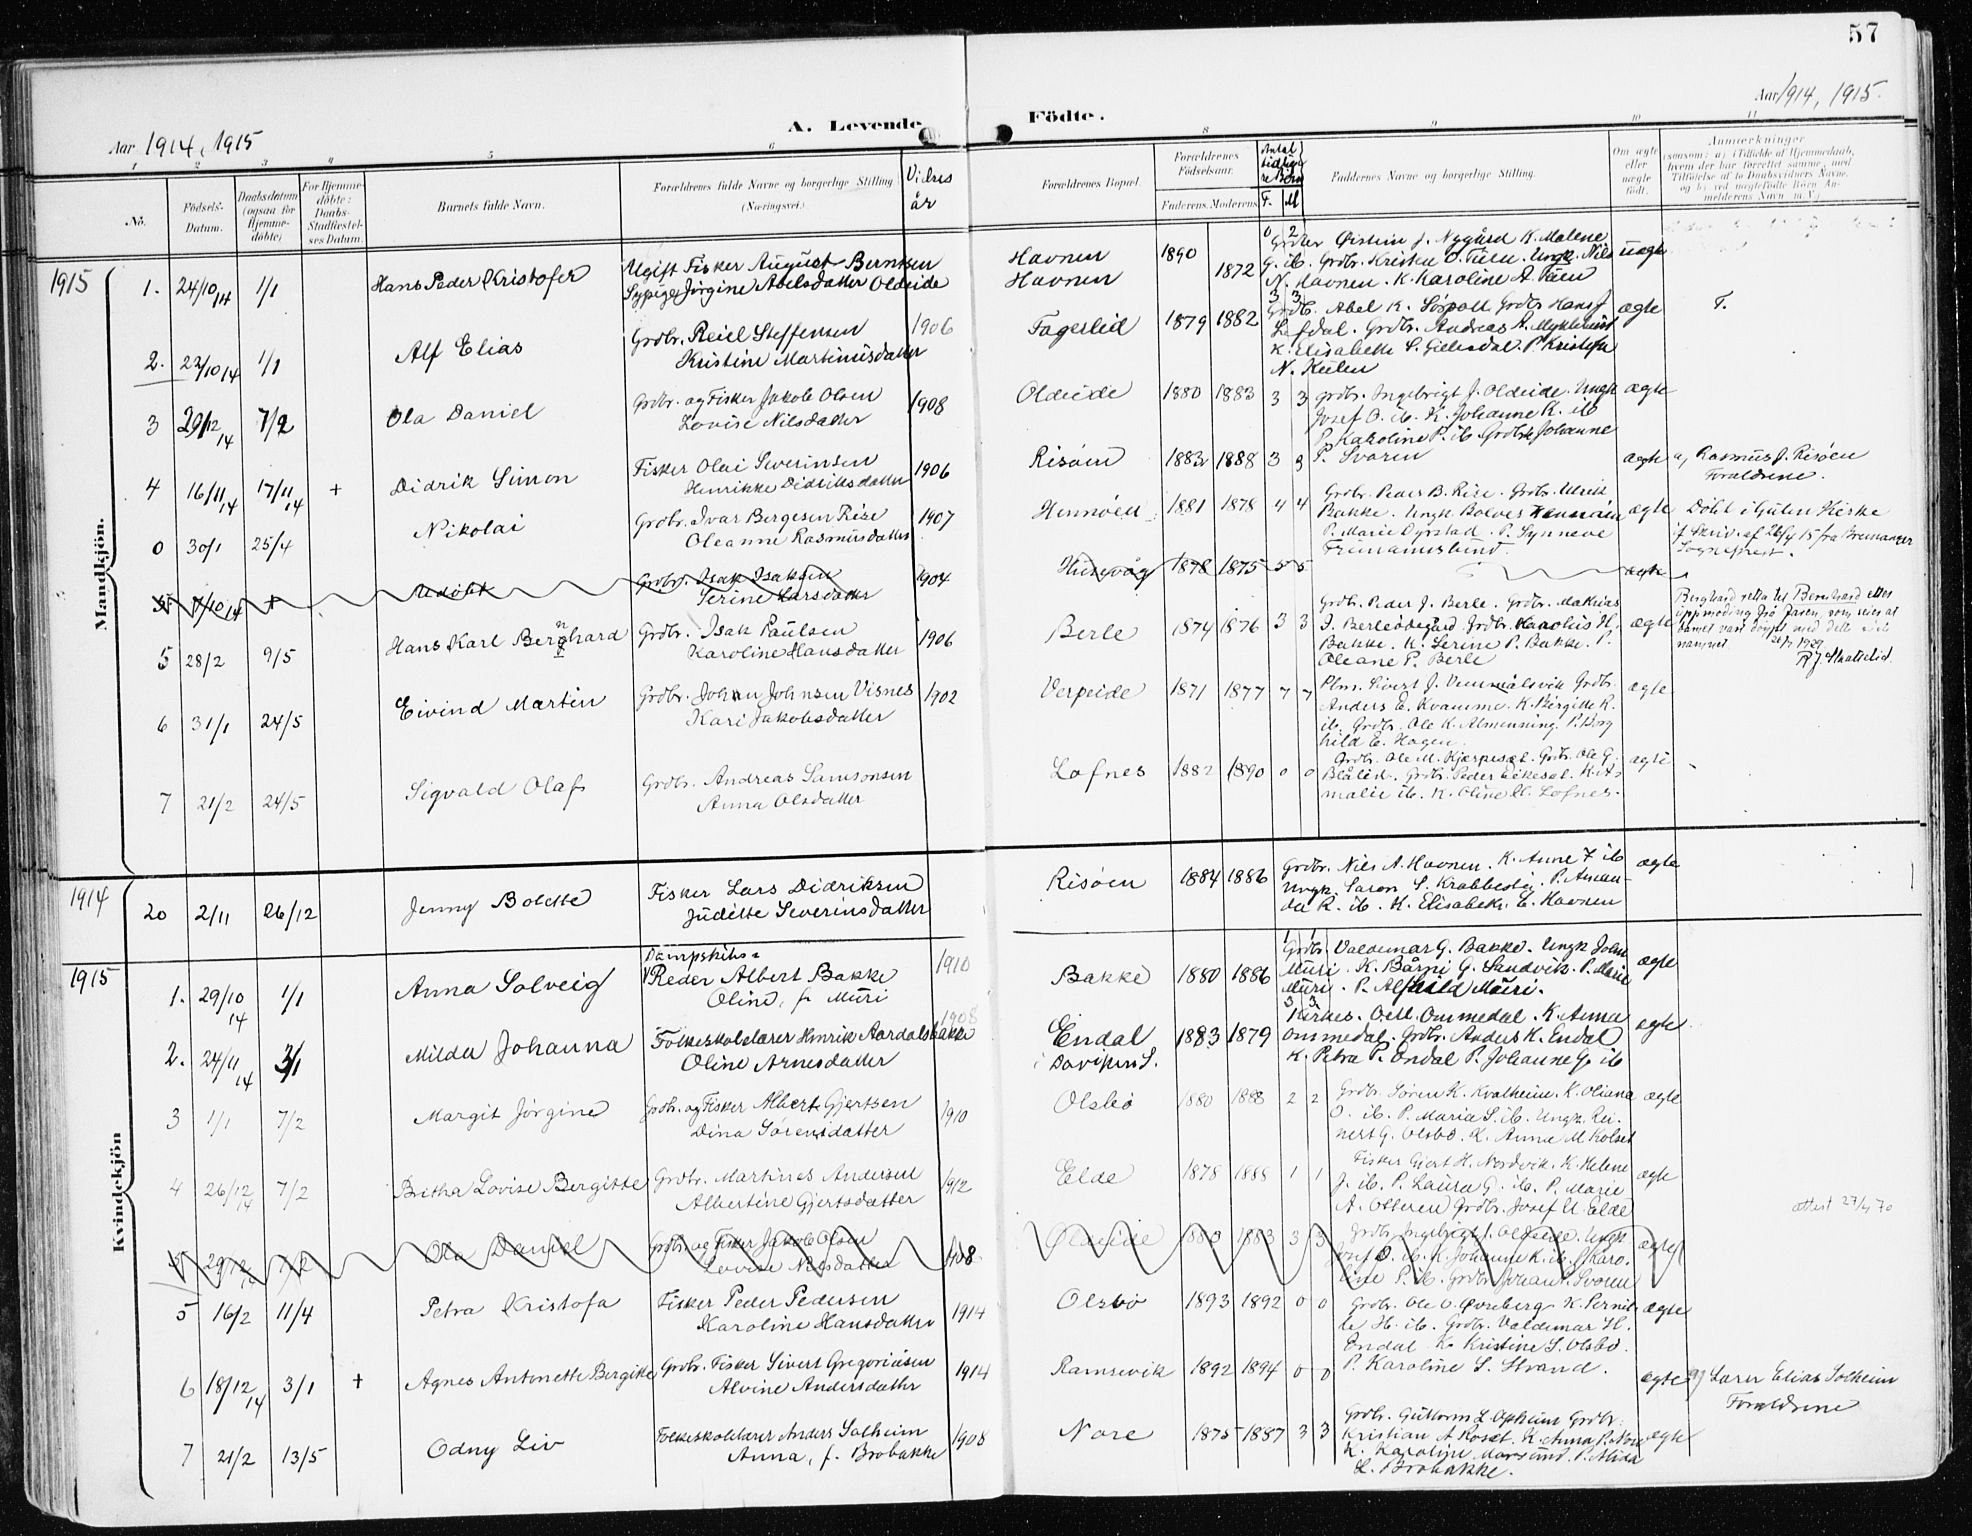 57
Aar 1914, 1915
A. Levende
Födte.
Aar 1914, 1915.
1 2 3 4 5 6 8 9 10 11
No.
Födsels-Datum.
Daabsdatum (ogsaa for Hjemme-döbte)
For Hjemme-döbte: Daabs-Stadfæstel-ses Datum.
Barnets fulde Navn.
Forældrenes fulde Navne og borgerlige Stilling (Næringsvei.)
Vielses år
Forældrenes Bopæl.
Forældrenes Födselsaar.
Faderens. Moderens.
Antal tidlige-re Börn
F. M
Faddernes Navne og borgerlige Stilling.
Om ægte eller uægte födt.
Anmærkninger
Mandkjön.
1915
1. 24/10 14 1/1 Hans Peder Kristofer
Ugift Fisker August Berntsen
Sypige Jörgine Abelsdatter Oldeide
Havnen 1890
Havnen 1872
0 2
Grdbr Øistein J. Nygård K. Malene
G. ib. Grdbr. Kristen O. Tuen. Ungk. Nils
N. Havnen. K. Karoline A. Tuen
uægte
2. 22/10 14 1/1 Alf Elias
Grdbr. Reiel Steffensen 1906
Kristine Martinusdatter
Fagerlid 1879 1882 3 3
Grdb. Abel K. Sörpoll Grdbr Hans J.
Lefdal. Grdbr. Andreas A. Myklebust
K. Elisabeth S. Gillesdal. P. Kristofa
N. Hulen
ægte
T.
3 29/12 14 7/2 Ola Daniel
Grdbr. og Fisker Jakob Olsen 1908
Lovise Nilsdatter
Oldeide 1880 1883 3 3
Grdbr. Ingebrigt J. Oldeide. Ungk
Josef O. ib. K. Johanne K. ib
P. Karoline P. ib. Grdbrk Johanne
P. Svoren
ægte
4 16/11 14 17/11 14 + Didrik Simon
Fisker Olai Severinsen 1906
Henrikke Didriksdatter
Risöen 1883 1888 3 3
ægte
a, Rasmus J. Risöen
Forældrene.
0 30/1 25/4 Nikolai
Grdbr. Ivar Bergesen Rise 1907
Oleanne Rasmusdatter
Hennöen 1881 1878 4 4
Grdbr. Peder B. Rise. Grdbr. Ulrik
Bakke. Ungk Bolves Hennöen
P. Marie Dyrstad. P. Synneve
Frimannslund.
ægte
Döbt i Gulen Kirke
if. Skriv. af 26/4 15 fra Bremanger
Sogneprest.
5 7/10 14 + Udöbt
Grdbr. Isak Isaksen 1904
Serine Larsdatter
Husevåg 1878 1875 5 5
ægte
5 28/2 9/5 Hans Karl Bernhard
Grdbr. Isak Paulsen 1906
Karoline Hansdatter
Berle 1874 1876 3 3
Grdbr. Peder J. Berle. Grdbr. Mathias
J. Berleödegård Grdbr. Karolus H.
Bakke. K. Serine P. Bakke. P.
Oleane P. Berle
ægte
Berghard retta til Bernhard etter
oppmoding frå faren, som seier at
barnet vart döypt med dette siste
namnet.
6 31/1 24/5 Eivind Martin
Grdbr. Johan Johnsen Visnes 1902
Kari Jakobsdatter
Verpeide 1871 1877 7 7
Plm. Sivert J. Vemmelsvik Grdbr.
Anders E. Kvamme. K. Birgitte K.
ib. Grdbr. Ole K. Almenning. P. Borg
hild E. Hagen.
ægte
7 21/2 24/5 Sigvald Olaf
Grdbr. Andreas Samsonsen
Anna Olsdatter
Lofnes 1882 1890 0 0
Grdbr. Ole M. Kjerpeset. Grdbr. Ole G.
Blålid. Grdbr. Peder Eikeset. K. A-
malie ib. K. Oline M. Lofnes.
ægte
1914
20 2/11 26/12 Jenny Bolette
Fisker Lars Didriksen
Judithe Severinsdatter
Risöen 1884 1886
Grdbr. Nils A. Havnen. K. Anne F. ib
Ungk. Saron S. Krabbestig. P. Aman-
da R. ib. K. Elisabeth E. Havnen
ægte
Kvindekjön
1915
1. 29/10 14 1/1 Anna Solveig
Dampskibs-
Reder Albert Bakke 1910
Oline, f. Muri
Bakke 1880 1886 1 1
Grdbr. Valdemar G. Bakke. Ungk John
Muri. K. Bårni G. Sandvik. P. Marie
Muri. P. Alfhild Muri.
ægte
2. 24/11 14 3/1 Milda Johanna
Folkeskolelærer Henrik Aardalsbakke 1908
Oline Arnesdatter
Endal
i Daviken S.
1883 1879 3 3
Kirkes. Oell. Ommedal. K. Anna
Ommedal. Grdbr. Anders K. Endal
K. Petra P. Endal P. Johanne G. ib
ægte
3 1/1 7/2 Margit Jörgine
Grdbr. og Fisker Albert Gjertsen 1910
Dina Sörensdatter
Olsbö 1880 1888 2 2
Grdbr. Sören K. Kvalheim. K. Oliana
O. ib. P. Maria S. ib. Ungk. Rei-
nert G. Olsbö. K. Anne M Kolset
ægte
4 26/12 14 7/2 Britha Lovise Bergitte
Grdbr. Martines Andersen 1912
Albertine Gjertsdatter
Elde 1878 1888 1 1
Fisker Gjert H. Nordvik. K. Helene
J. ib. P. Laura G. ib. P. Marie
A. Otteren Grdbr. Josef U. Elde
ægte
attest 27/4 70
5 29/12 14 7/2 Ola Daniel
Grdbr. og Fisker Jakob Olsen 1908
Lovise Nilsdatter
Oldeide 1880 1883 3 3
Grdbr. Ingebrigt J. Oldeide. Ungk
Josef O. ib. K. Johanne K. ib. P. Karo-
line P. ib. Grdbr. Johan P. Svoren
ægte
5 16/2 11/4 Petra Kristofa
Fisker Peder Pedersen 1914
Karoline Hansdatter
Olsbö 1893 1892 0 0
Grdbr. Ole O. Øvreberg K. Pernil-
le H. ib. Grdbr. Valdemar H.
Endal K. Kristine S. Olsbö.
P. Karoline S. Strand.
ægte
6 18/12 14 3/1 + Agnes Antonette Bergitte
Grdbr. Fisker Sivert Gregoriusen 1914
Alvine Andersdatter
Ramsevik 1892 1894 0 0
ægte
a) Lærer Elias Solheim
Forældrene
7 21/2 13/5 Odny Liv
Folkeskolelærer Anders Solheim 1908
Anna, f. Brobakke
Nore 1875 1887 3 3
Grdbr. Guttorm L Opheim Grdbr.
Kristian A Roset. K. Anna P. Nore
K. Karoline Marsund. P. Alida
L. Brobakke.
ægte